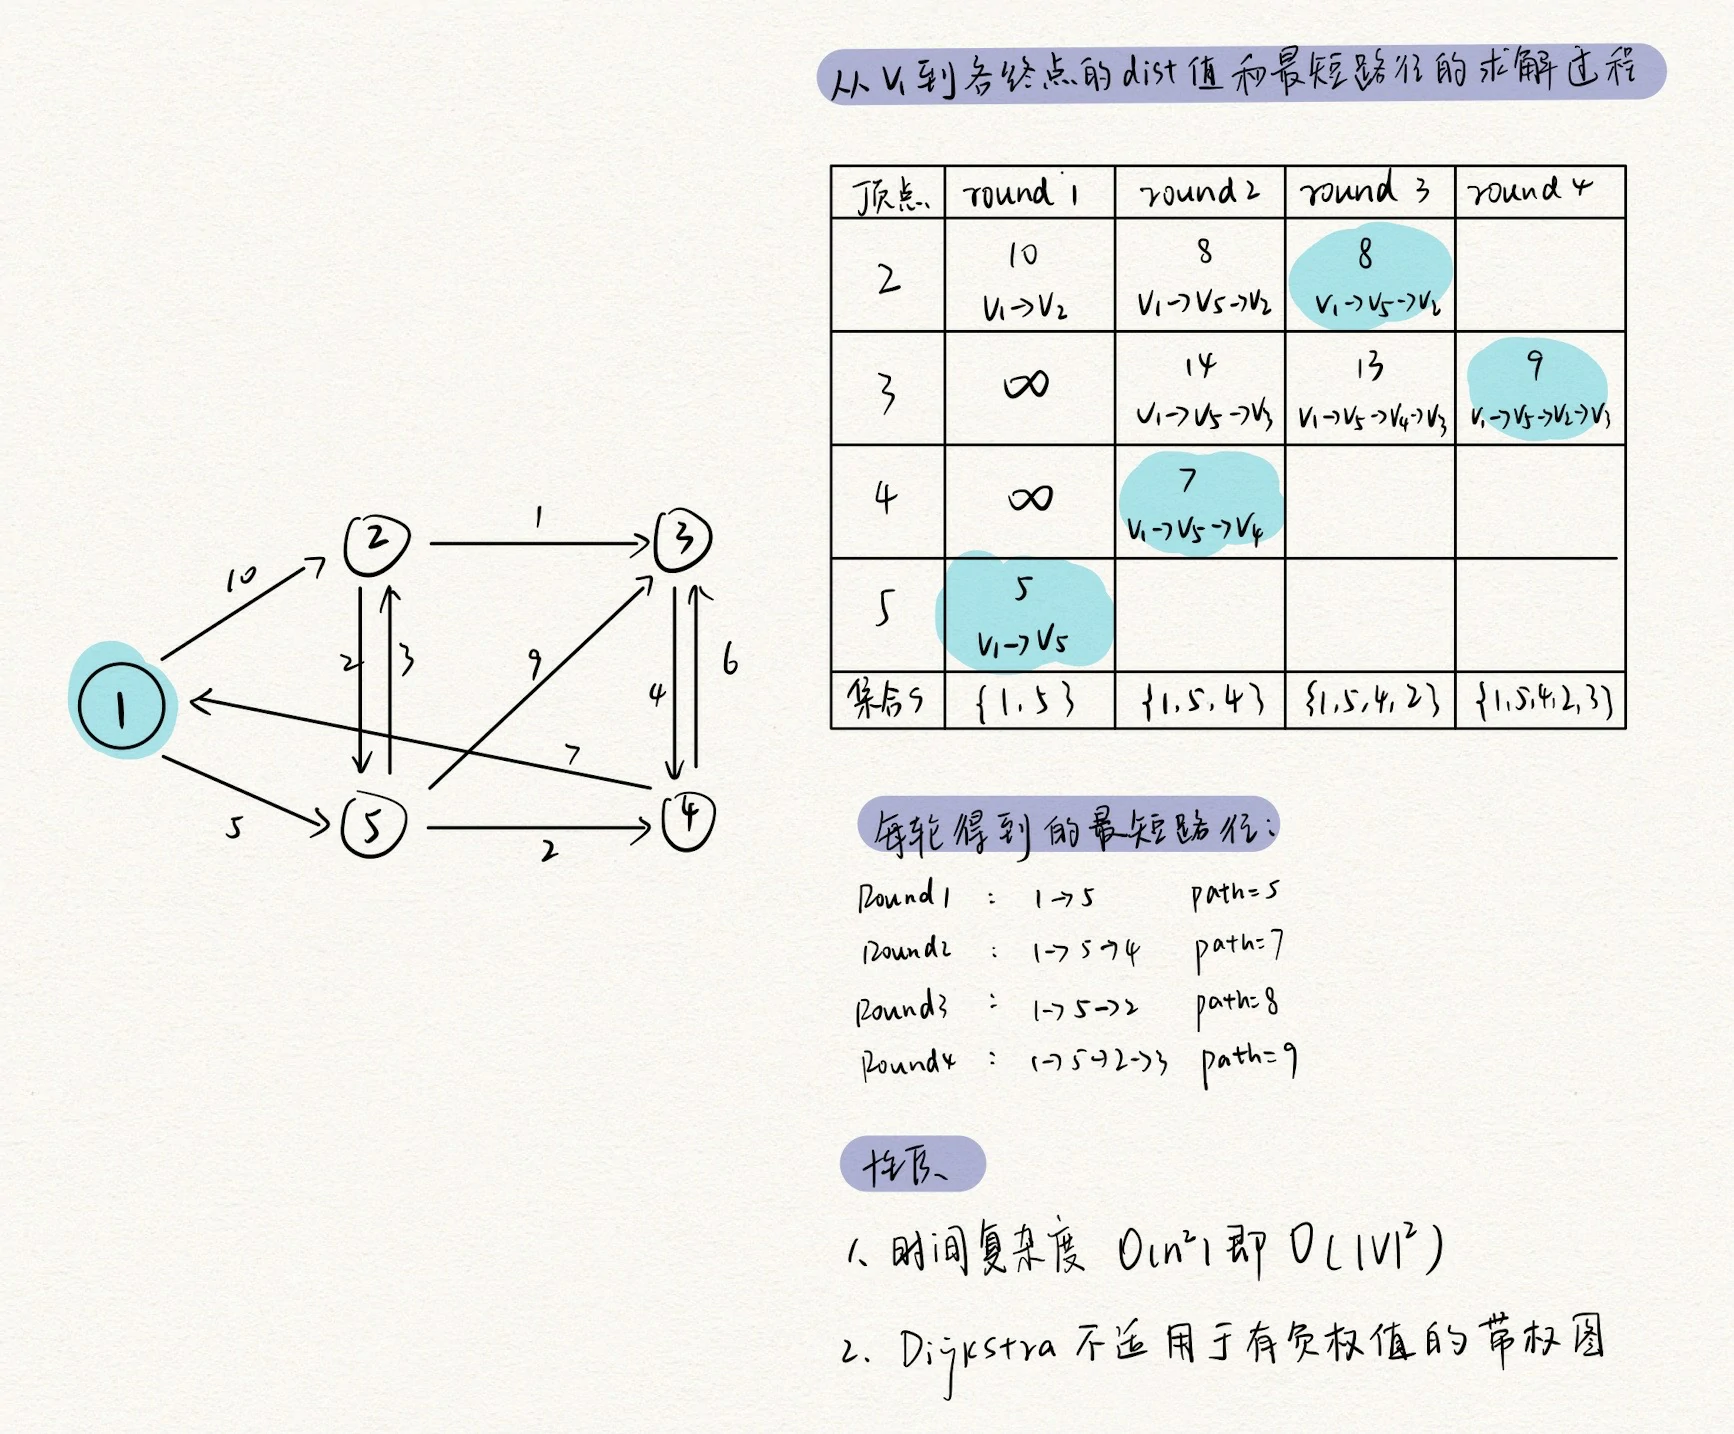 从V₁到各终点的dist值和最短路径的求解过程
顶点 round 1 round 2 round 3 round 4
2
10
V₁→V₂
8
V₁→V₅→V₂
8
V₁→V₅→V₂
3
∞
14
V₁→V₅→V₃
13
V₁→V₅→V₄→V₃
9
V₁→V₅→V₂→V₃
4
∞
7
V₁→V₅→V₄
5
5
V₁→V₅
集合S {1,5} {1,5,4} {1,5,4,2} {1,5,4,2,3}
1
2
3
4
5
10
1
2
3
9
4
6
7
5
2
每轮得到的最短路径:
Round1 : 1→5 path=5
Round2 : 1→5→4 path=7
Round3 : 1→5→2 path=8
Round4 : 1→5→2→3 path=9
性质、
1、时间复杂度 O(n²)即 O(|V|²)
2. Dijkstra 不适用于有负权值的带权图